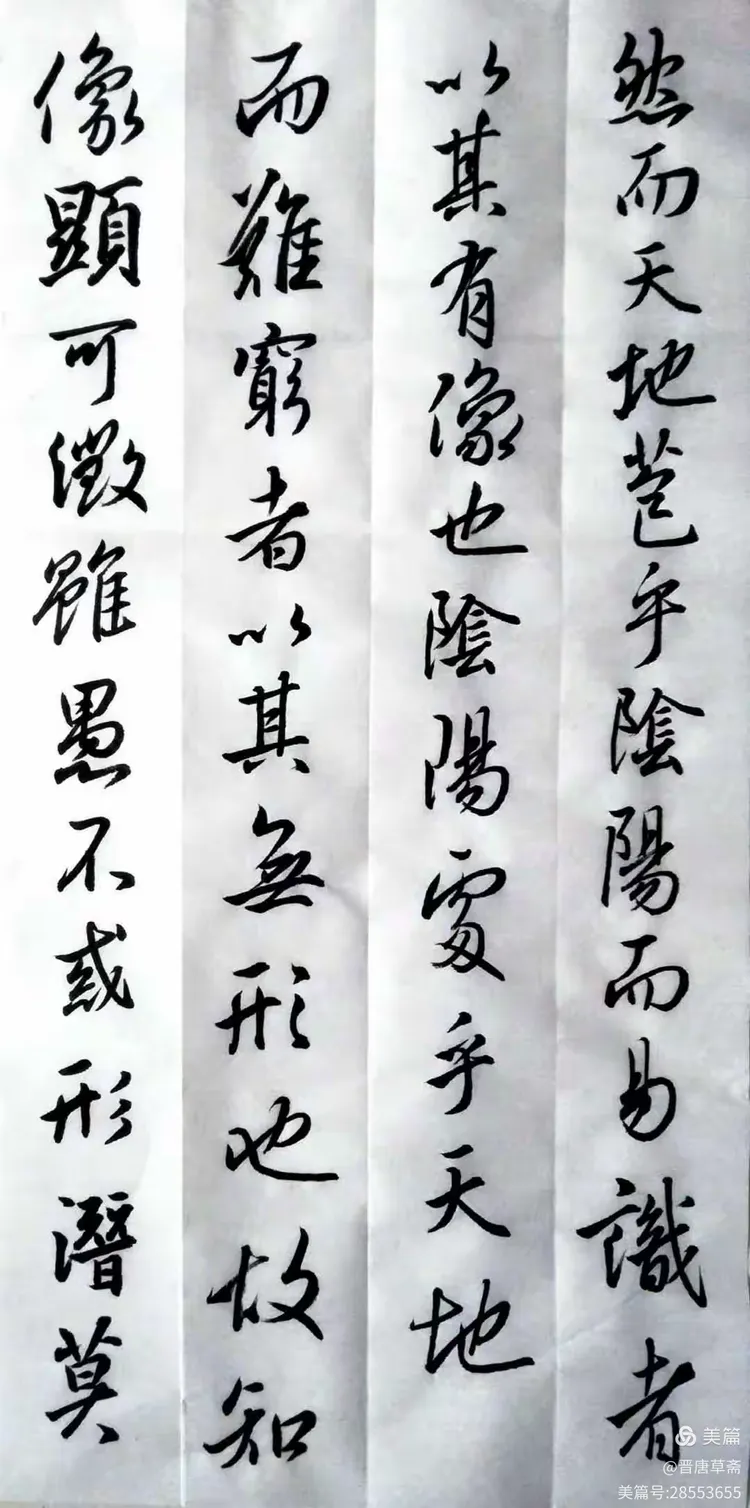 然而天地苞乎陰陽而易識者
以其有像也陰陽處乎天地
而難窮者以其無形也故知
像顯可徵雖愚不惑形潛莫
美篇
@晋唐草斋
美篇号:28553655